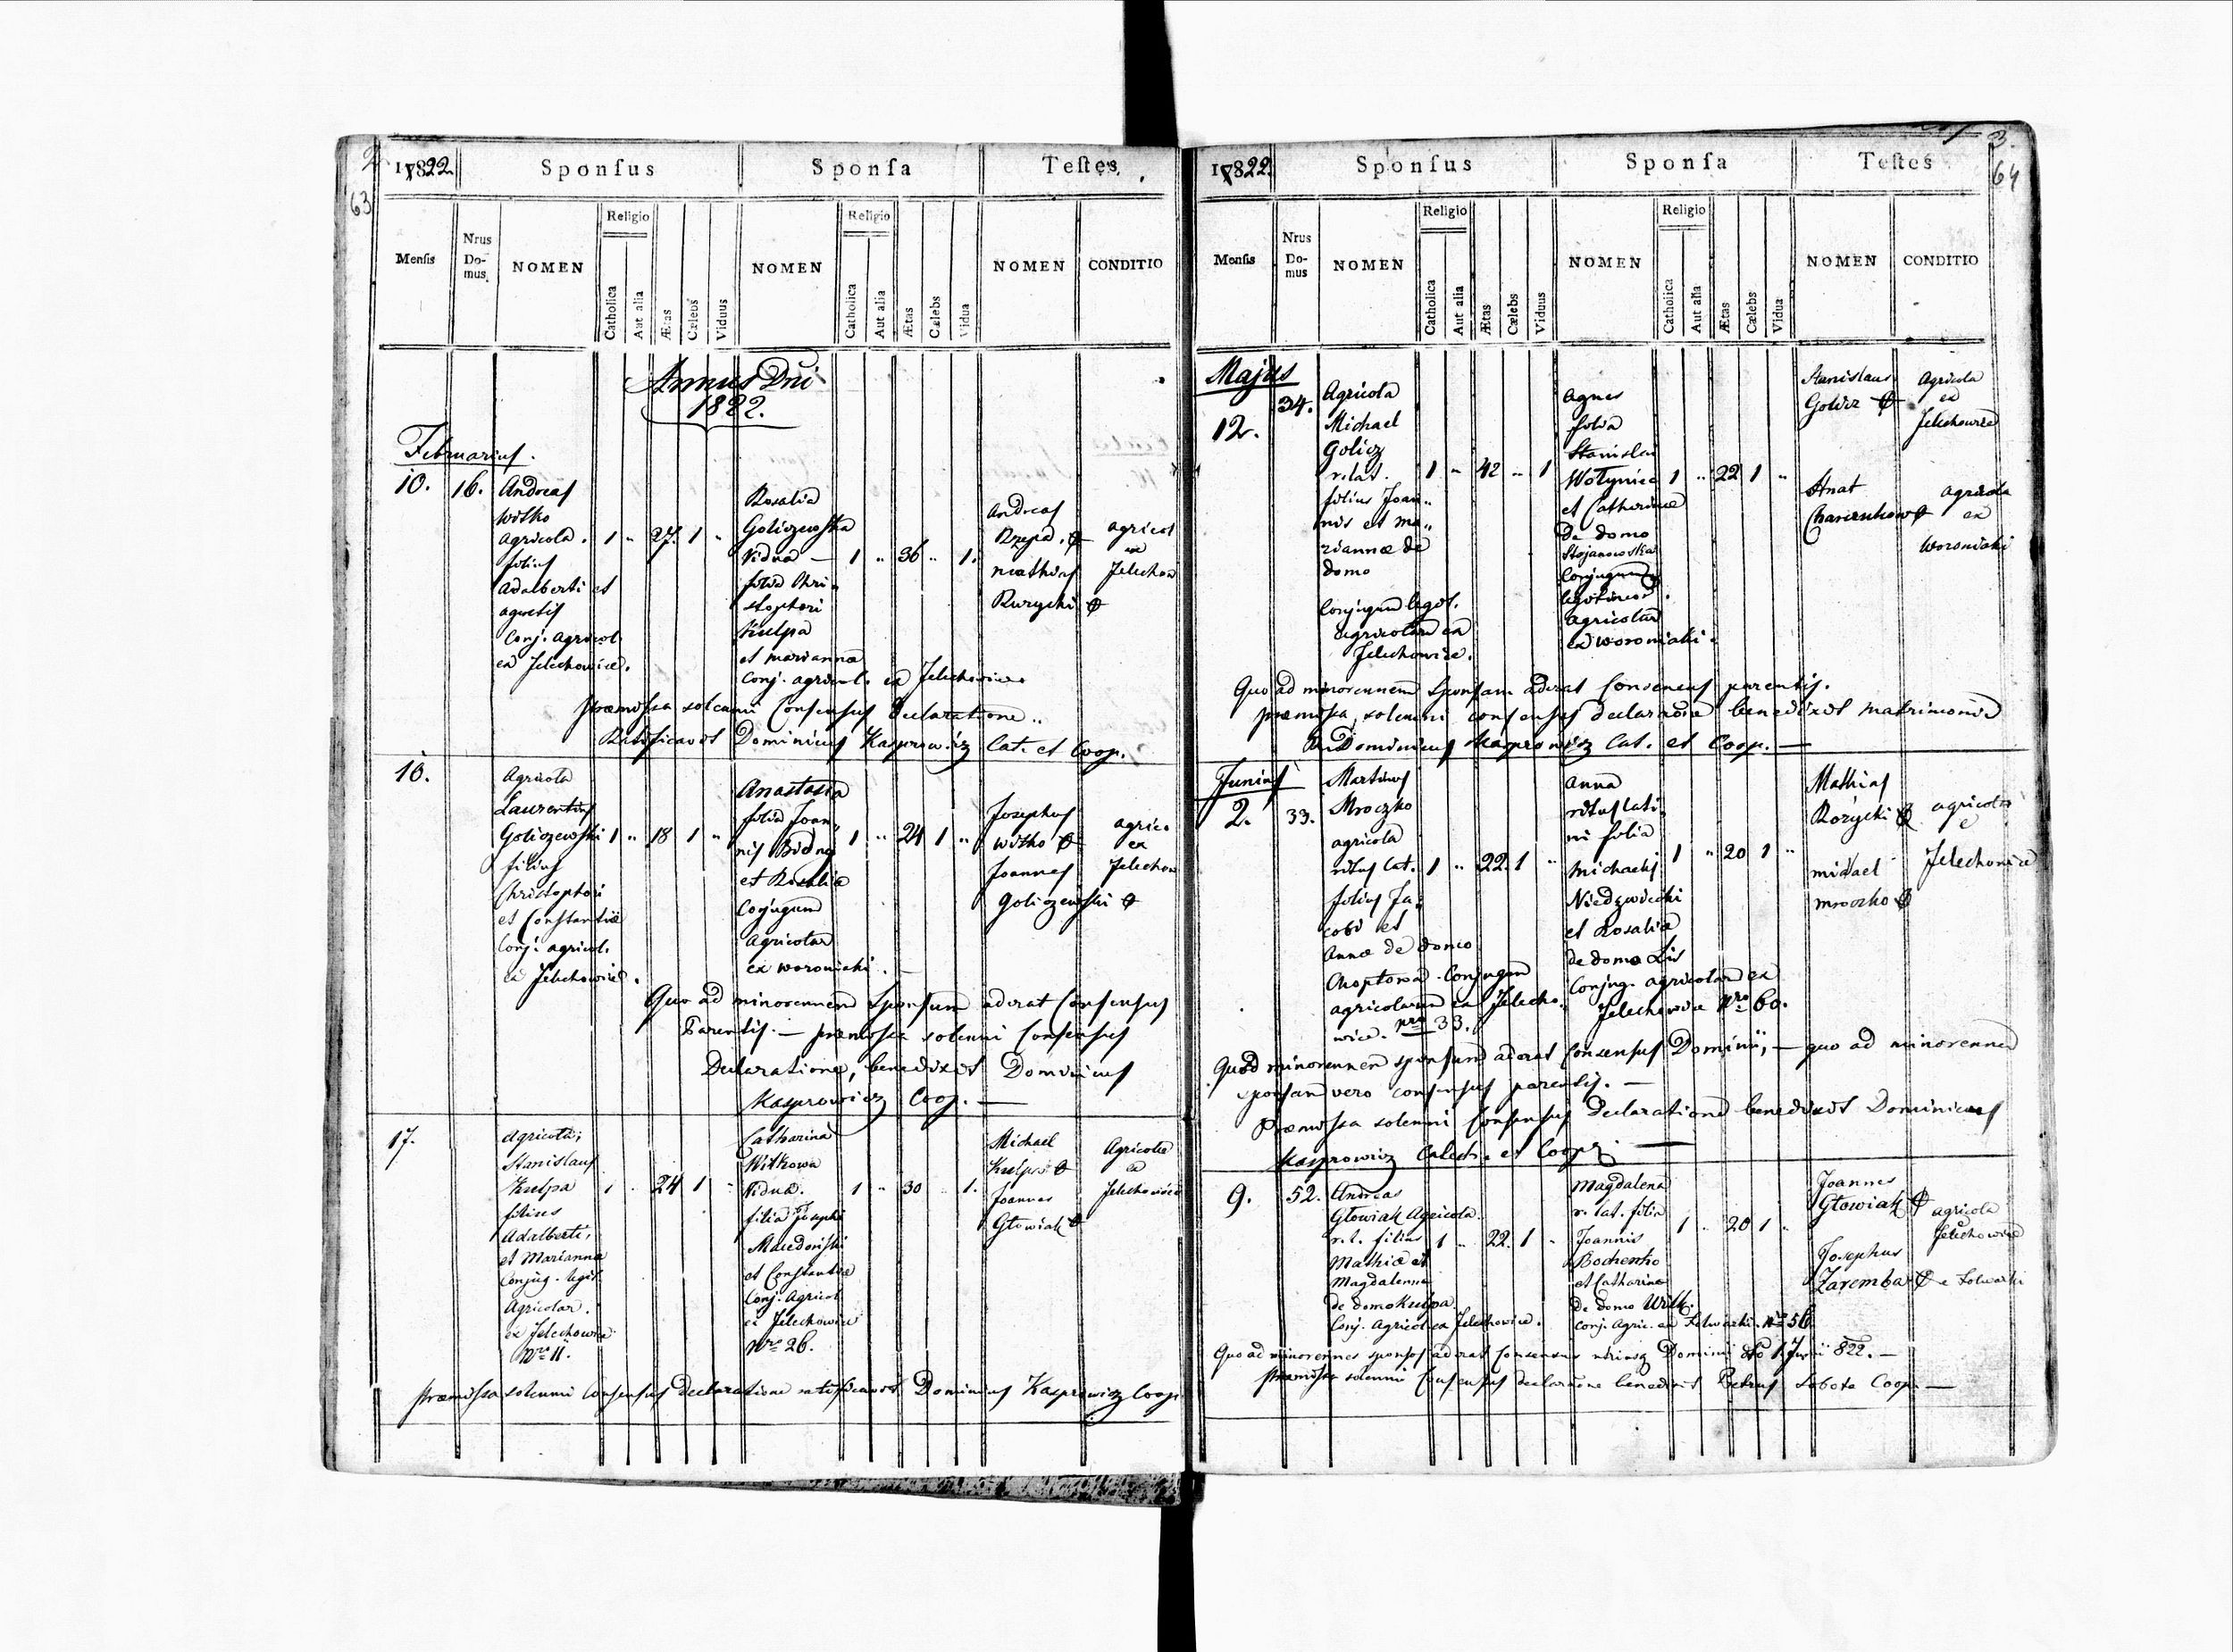 2
63
1822 Sponſus Sponſa Teſtes
Menſis Nrus Do-mus NOMEN Religio Catholica Aut alia Ætas Cælebs Viduus NOMEN Religio Catholica Aut alia Ætas Cælebs Vidua NOMEN CONDITIO
Annus Dni
1822.
Februarius.
10. 16. Andreas
Witko
agricola. 1 " 27. 1 "
filius
Adalberti et
agnetis
Conj. agricol.
ex Jelechowice.
Rosalia
Goliczewska
Vidua — 1 " 36 " 1.
filia Chri-
stophori
Kulpa
et Marianna
Conj. agricol. ex Jelechowice
Andreas
Rzepa
Mathias
Rurycki
agricol
ex
Jelechow
præmissa solemni Consensus Declaratione
Ratificavit Dominicus Kasprowicz Cat. et Coop.
10.
Agricola
Laurentius
Goliczewski 1 " 18 1 "
filius
Christophori
et Constantiæ
Conj. agricol.
ex Jelechowice.
Anastasia
filia Joan-
nis
et Rosaliæ 1 " 24 1 "
Conjugum
Agricolar
ex Woroniaki.
Josephus
Witko
Joannes
Goliczewski
agric.
ex
Jelechow
Quo ad minorennem Sponsum aderat Consensus
Parentis. — præmissa solemni Consensus
Declaratione, benedixit Dominicus
Kasprowicz Coop. —
17.
Agricola;
Stanislaus
Kulpa 1 " 24 1 "
filius
Adalberti,
et Marianna
Conjug. legit.
Agricolar.
ex Jelechowice
Nro 11.
Catharina
Witkowa
Vidua. 1 " 30 " 1.
filia Josephi
Macedoński
et Constantiæ
Conj. Agricol
ex Jelechowice
Nro 26.
Michael
Kulpa
Joannes
Głowiak
Agricolæ
ex
Jelechowice
Præmissa solemni Consensus Declaratione ratificavit Dominicus Kasprowicz Coop
3.
64
1822. Sponſus Sponſa Teſtes
Menſis Nrus Do-mus NOMEN Religio Catholica Aut alia Ætas Cælebs Viduus NOMEN Religio Catholica Aut alia Ætas Cælebs Vidua NOMEN CONDITIO
Majus
12. 34.
Agricola
Michael
Golicz
r. lat. 1 " 42 " 1
filius Joan-
nis et Ma-
riannæ de
domo
Conjugum legit.
agricolarum ex
Jelechowice.
Agnes
filia
Stanislai
Wołyniec 1 " 22 1 "
et Catharinæ
de domo
Stojanowska
Conjugum
legitimor.
agricolar
ex Woroniaki.
Stanislaus
Golicz
Hnat
Agricola
ex
Jelechowice
agricola
ex
Woroniaki
Quo ad minorennem Sponsam aderat Consensus parentis.
præmissa, solemni consensus declarațione benedixit matrimonio
Dominicus Kasprowicz Cat. et Coop. —
Junius
2. 33.
Martinus
Mroczko
agricola
ritus lat. 1 " 22. 1 "
filius Ja-
cobi et
Annæ de domo
Choptowa Conjugum
agricolarum ex Jelecho-
wice. Nro 33.
Anna
ritus lati-
ni filia
Michaelis 1 " 20 1 "
Niedzwiecki
et Rosaliæ
de domo Lis
Conjug. agricolarum ex
Jelechowice Nro 60.
Mathias
Rożycki
Michael
Mroczko
agricolæ
e
Jelechowice
Quoad minorennem sponsum aderat Consensus Dominii, — quo ad minorennem
sponsam vero consensus parentis. —
Præmissa solemni Consensus Declaratione benedixit Dominicus
Kasprowicz Catech. et Coop. —
9. 52.
Andreas
Głowiak Agricola.
r. l. filius 1 " 22. 1 "
Mathiæ et
Magdalenna
de domo Kulpa
Conj. Agricol. ex Jelechowice.
Magdalena
r. lat. filia
Joannis 1 " 20 1 "
Bochenko
et Catharina
de domo Wilk.
Conj. Agric. ex Folwarki. Nro 56.
Joannes
Głowiak
Josephus
Zaremba
agricola
e
Jelechowice
e Folwarki
Quo ad minorennes sponsos aderat Consensus utriusq Dominii dto 1. Junii 822. —
Præmissa solemni Consensus declaratione benedixit Petrus Sobota Coop. —